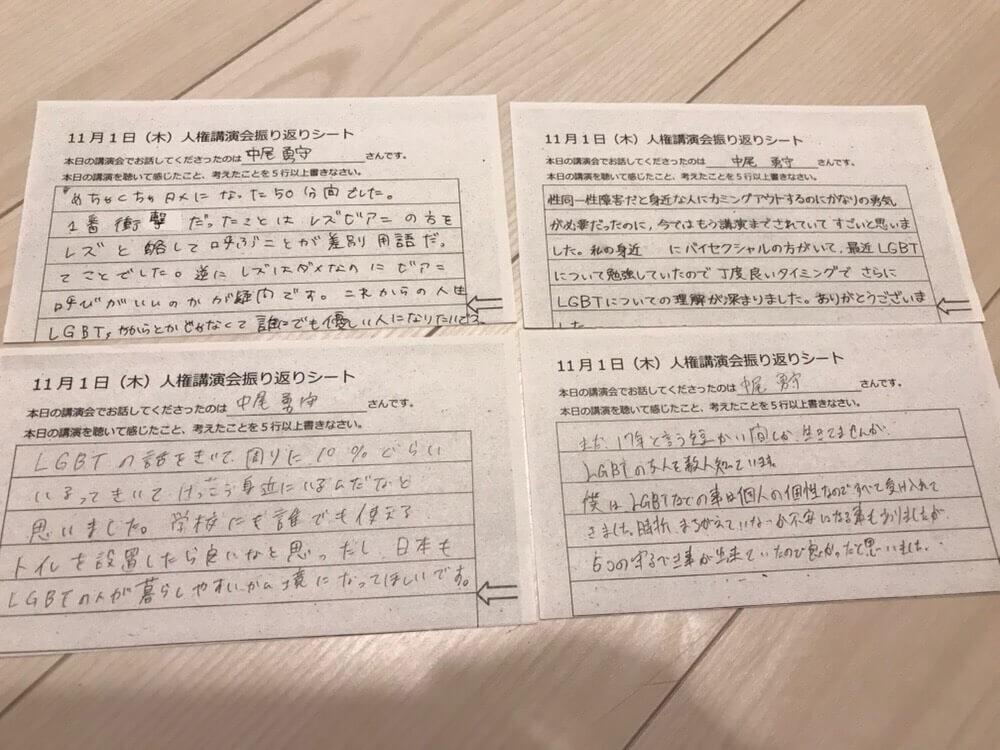 11月1日（木）人権講演会振り返りシート
本日の講演会でお話してくださったのは 中尾 勇守 さんです。
本日の講演を聴いて感じたこと、考えたことを5行以上書きなさい。
めちゃくちゃタメになった50分間でした。
1番衝撃だったことはレズビアンの方を
レズと略して呼ぶことが差別用語だっ
てことでした。逆にレズはダメなのにビアン
呼びがいいのかが疑問です。これからの人生
LGBTだからとかじゃなくて誰にでも優しい人になりたいです。
11月1日（木）人権講演会振り返りシート
本日の講演会でお話してくださったのは 中尾 勇守 さんです。
本日の講演を聴いて感じたこと、考えたことを5行以上書きなさい。
性同一性障害だと身近な人にカミングアウトするのにかなりの勇気
が必要だったのに、今ではもう講演までされていてすごいと思いま
した。私の身近 にバイセクシャルの方がいて、最近LGBT
について勉強していたので丁度良いタイミングでさらに
LGBTについての理解が深まりました。ありがとうございま
した
11月1日（木）人権講演会振り返りシート
本日の講演会でお話してくださったのは 中尾 勇守 さんです。
本日の講演を聴いて感じたこと、考えたことを5行以上書きなさい。
LGBTの話をきいて、周りに10%ぐらい
いるってきいてけっこう身近にいるんだなと
思いました。学校にも誰でも使える
トイレを設置したら良いなと思ったし、日本も
LGBTの人が暮らしやすいかん境になってほしいです。
11月1日（木）人権講演会振り返りシート
本日の講演会でお話してくださったのは 中尾 勇守 さんです。
本日の講演を聴いて感じたこと、考えたことを5行以上書きなさい。
まだ17年と言う短かい間しか生きてませんが、
LGBTの方を数人知っています。
僕はLGBTなどの事は個人の個性なのですべて受け入れて
きました。時折、まちがえていないか不安になる事もありましたが、
5つの守るべき事が出来ていたので良かったと思いました。